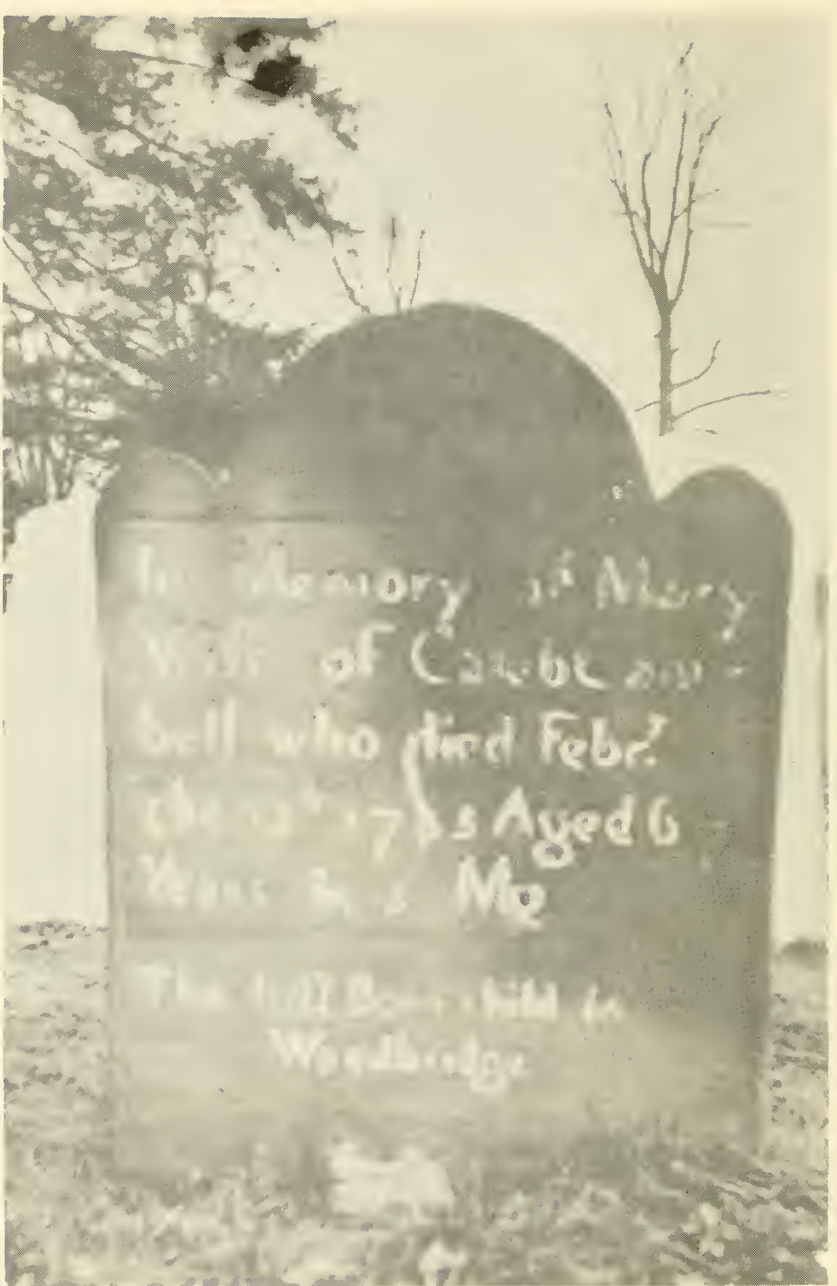 In Memory of Mary
Wife of Caleb Cam-
bell who died Febr.y
the 17 Aged 6
Years & Mo
The first Born child in
Woodbridge